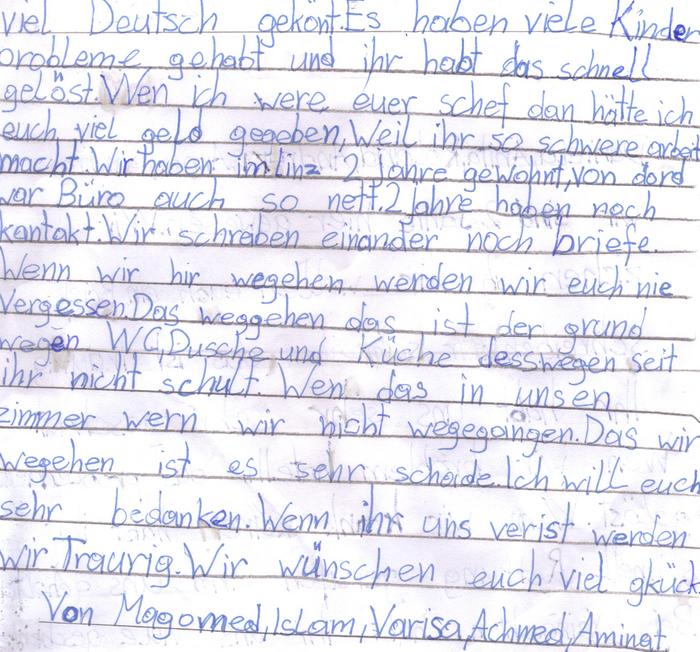 viel Deutsch gekönt.Es haben viele Kinder
probleme, gehabt und ihr habt das schnell
gelöst.Wen ich were euer schef dan hätte ich
euch viel geld gegeben,Weil ihr so schwere arbeit
macht.Wir haben im linz 2 jahre gewohnt,von dord
war Büro auch so nett.2 Jahre haben noch
kontakt.Wir schreiben einander noch briefe.
Wenn wir hir wegehen werden wir euch nie
Vergessen.Das weggehen das ist der grund
wegen WC,Dusche und Küche desswegen seit
ihr nicht schult. Wen das in unsen
zimmer wern wir nicht wegegangen.Das wir
wegehen ist es sehr schade.Ich will euch
sehr bedanken.Wenn ihr uns verist werden
wir.Traurig.Wir wünschen euch viel gkück.
Von Magomed,Islam,Varisa,Achmed,Aminat